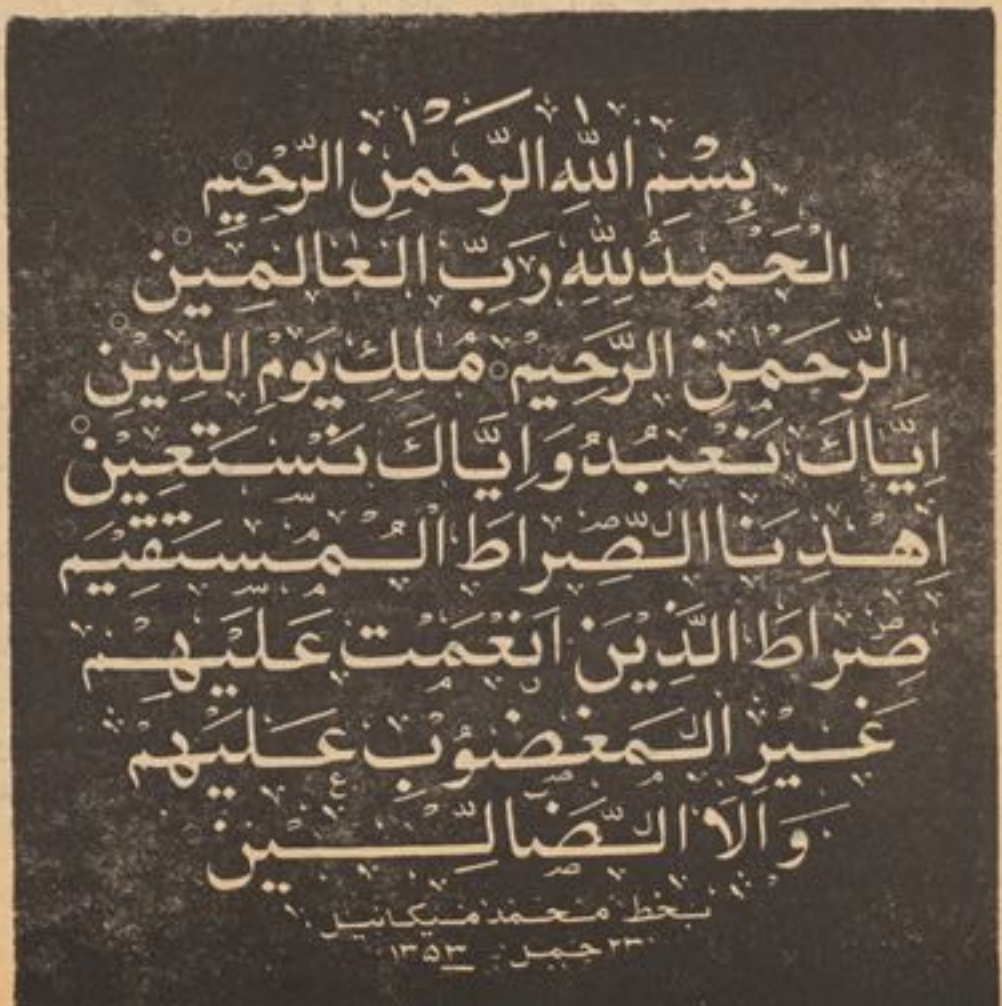 بِسْمِ اللهِ الرَّحْمٰنِ الرَّحِيْمِ
الْحَمْدُ لِلّٰهِ رَبِّ الْعٰالَمِيْن
الرَّحْمٰنِ الرَّحِيْمِ مٰلِكِ يَوْمِ الدِّيْنِ
اِيَّاكَ نَعْبُدُ وَاِيَّاكَ نَسْتَعِيْنْ
اِهْدِنَا الصِّرَاطَ الْمُسْتَقِيْمَ
صِرَاطَ الَّذِيْنَ اَنْعَمْتَ عَلَيْهِمْ
غَيْرِ الْمَغْضُوْبِ عَلَيْهِمْ
وَالَا الضَّالِّيْن
بخط محمد ميكائيل
٢٣ ١٣٥٣